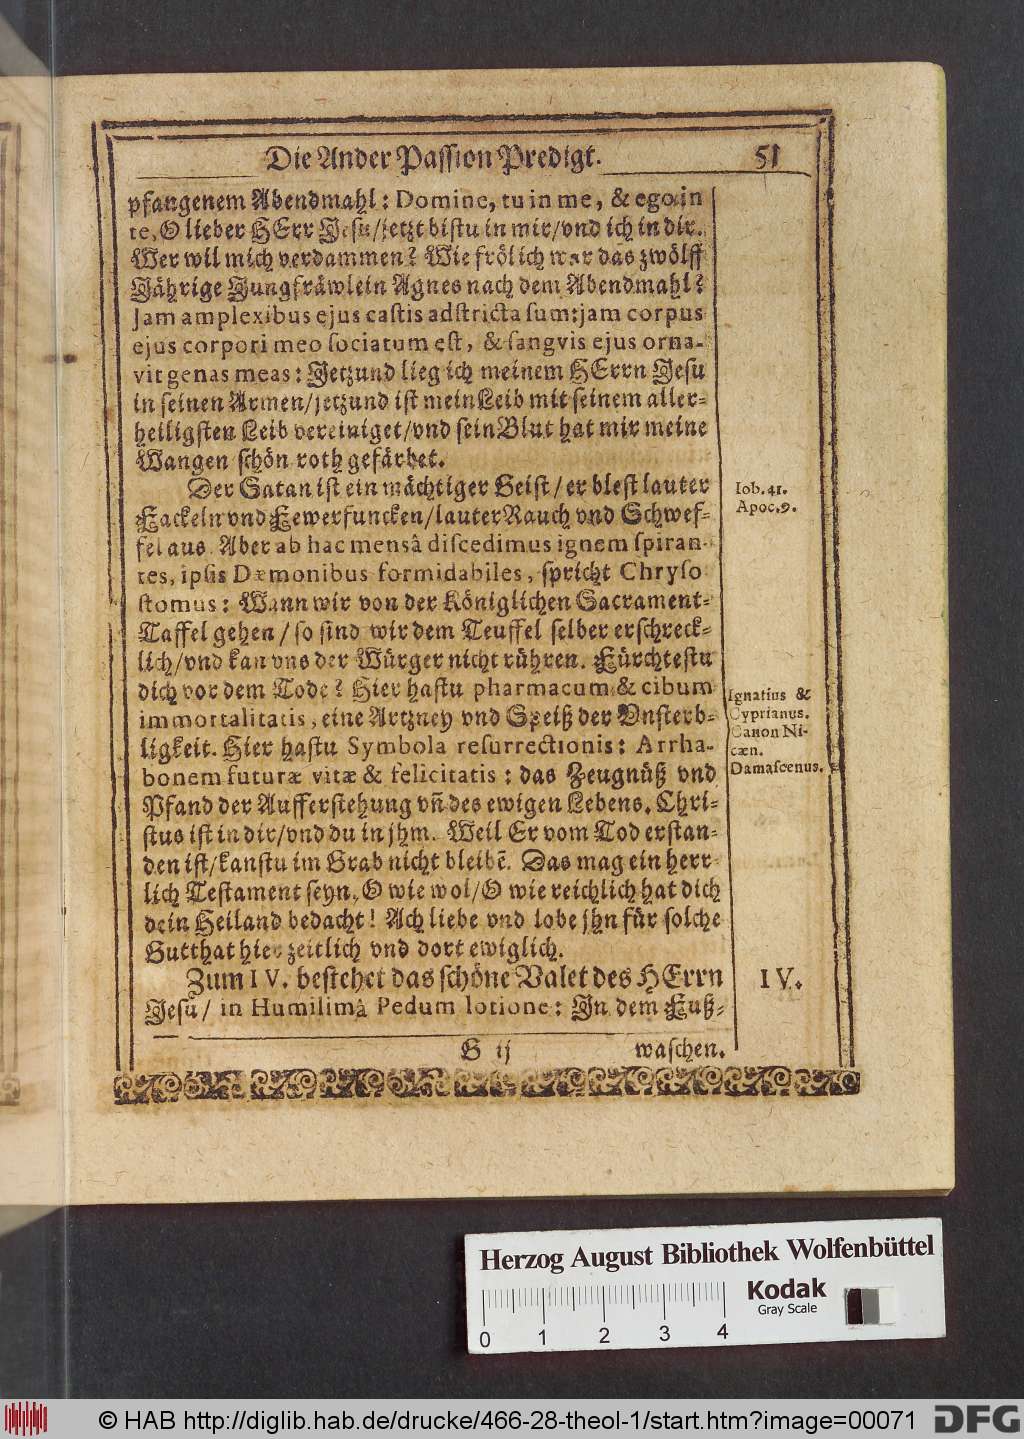 Die Ander Passion Predigt. 51
pfangenem Abendmahl: Domine, tu in me, & ego in
te, O lieber HErr Jesu/ jetzt bistu in mir/ vnd ich in dir.
Wer wil mich verdammen? Wie frölich war das zwölff
Jährige Jungfräwlein Agnes nach dem Abendmahl?
Jam amplexibus ejus castis adstricta sum: jam corpus
ejus corpori meo sociatum est, & sangvis ejus orna-
vit genas meas: Jetzund lieg ich meinem HErrn Jesu
in seinen Armen/ jetzund ist mein Leib mit seinem aller-
heiligsten Leib vereiniget/ vnd sein Blut hat mir meine
Wangen schön roth gefärbet.
Der Satan ist ein mächtiger Geist/ er blest lauter
Fackeln vnd Fewerfuncken/ lauter Rauch vnd Schwef-
fel aus. Aber ab hac mensâ discedimus ignem spiran-
tes, ipsis Dæmonibus formidabiles, spricht Chryso
stomus: Wann wir von der Königlichen Sacrament-
Taffel gehen/ so sind wir dem Teuffel selber erschreck-
lich/ vnd kan vns der Würger nicht rühren. Fürchtestu
dich vor dem Tode? Hier hastu pharmacum & cibum
immortalitatis, eine Artzney vnd Speiß der Vnsterb-
ligkeit. Hier hastu Symbola resurrectionis: Arrha-
bonem futuræ vitæ & felicitatis: das Zeugnüß vnd
Pfand der Aufferstehung vñ des ewigen Lebens. Chri-
stus ist in dir/ vnd du in jhm. Weil Er vom Tod erstan-
den ist/ kanstu im Grab nicht bleibẽ. Das mag ein herr-
lich Testament seyn. O wie wol/ O wie reichlich hat dich
dein Heiland bedacht! Ach liebe vnd lobe jhn für solche
Gutthat hier zeitlich vnd dort ewiglich.
Zum IV. bestehet das schöne Valet des HErrn
Jesu/ in Humilimâ Pedum lotione: In dem Fuß-
G ij waschen.
Iob. 41.
Apoc. 9.
Ignatius &
Cyprianus.
Canon Ni-
cæn.
Damascenus.
IV.
Herzog August Bibliothek Wolfenbüttel
Kodak
Gray Scale
0 1 2 3 4
© HAB http://diglib.hab.de/drucke/466-28-theol-1/start.htm?image=00071
DFG